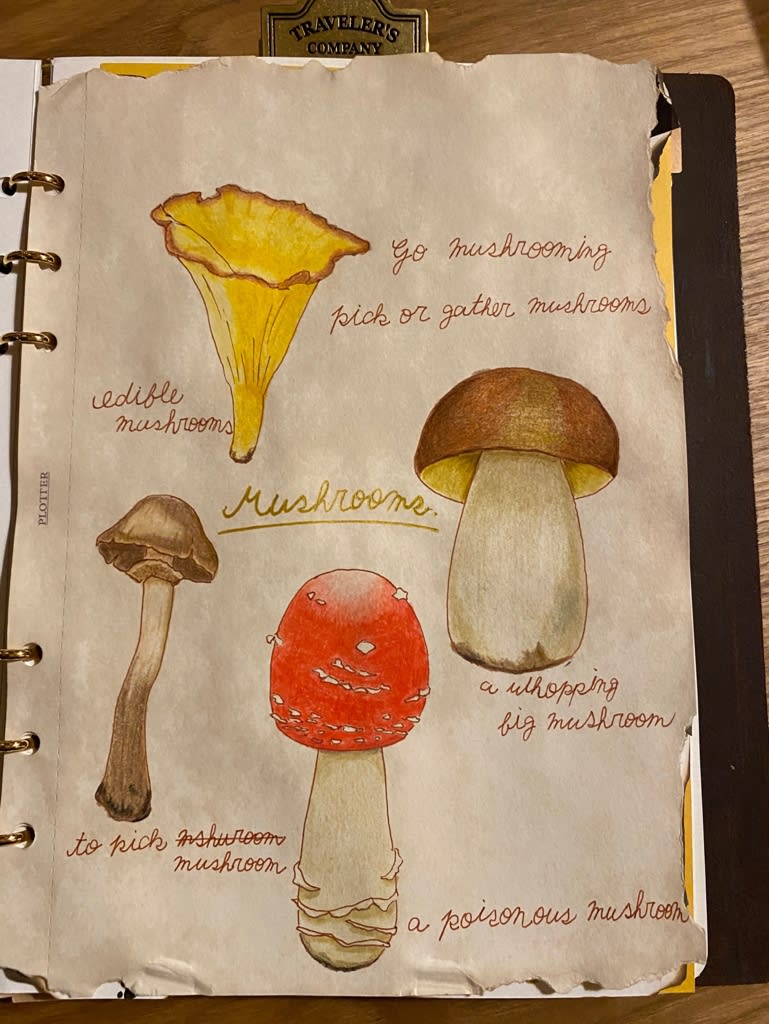 TRAVELER'S
COMPANY
Go mushrooming
pick or gather mushrooms
edible
mushrooms
Mushrooms.
PLOTTER
a whopping
big mushroom
to pick mshuroom
mushroom
a poisonous mushroom